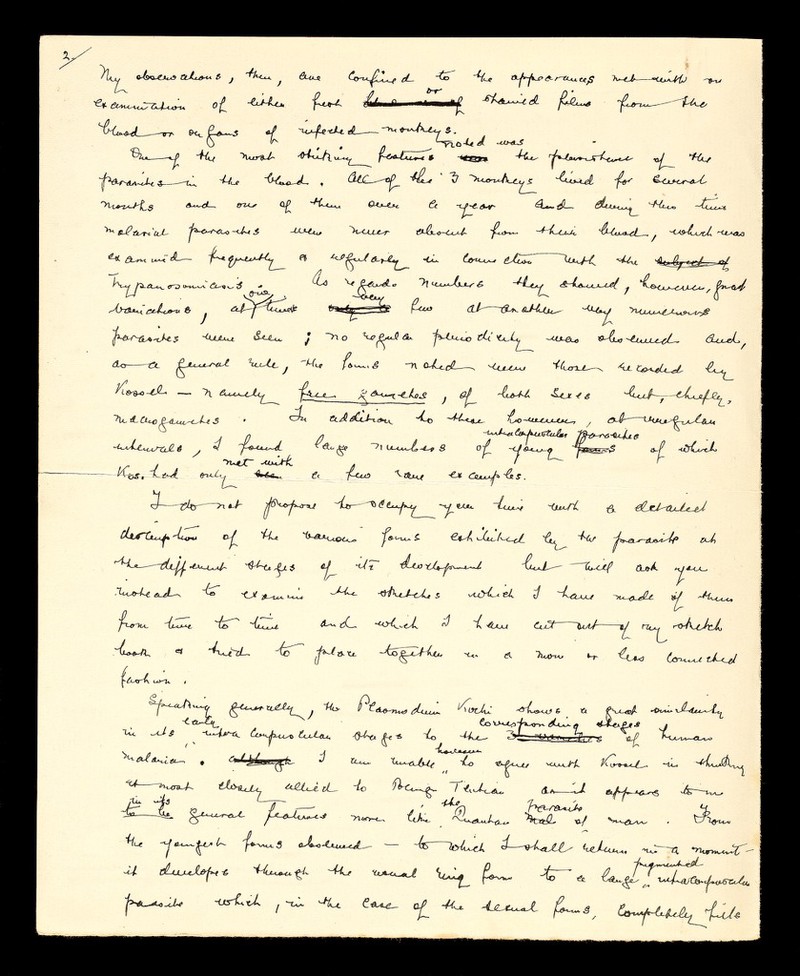 2.
My observations, then, are confined to the appearances met with on
examination of either fresh or stained films from the
blood or organs of infected monkeys.
One of the most striking features noted was the persistence of the
parasites in the blood. All of the 3 monkeys lived for several
months and one of them over a year and during this time
malarial parasites were never absent from their blood, which was
examined frequently & regularly in connection with the subject of
Trypanosomiasis. As regards numbers they showed, however, great
variations, at one time very few at another very numerous
parasites were seen; no regular periodicity was observed and,
as a general rule, the forms noted were those recorded by
Kossel — namely free gametes, of both sexes but, chiefly,
macrogametes. In addition to these however, at irregular
intervals, I found large numbers of young intracorpuscular parasites of which
Kos. had only met with a few rare examples.
I do not propose to occupy your time with a detailed
description of the various forms exhibited by the parasite at
the different stages of its development but will ask you
instead to examine the sketches which I have made of them
from time to time and which I have cut out of my sketch
book & tried to place together in a more or less connected
fashion.
Speaking generally, the Plasmodium Kochi shows a great similarity
in its early intra corpuscular stages to the corresponding stages of human
malaria. I am unable however to agree with Kossel in thinking
it most closely allied to Benign Tertian as it appears to me
in its general features more like the Quartan parasite of man. From
the youngest forms observed — to which I shall return in a moment —
it develops through the usual ring form to a large pigmented intracorpuscular
parasite which, in the case of the sexual forms, completely fills